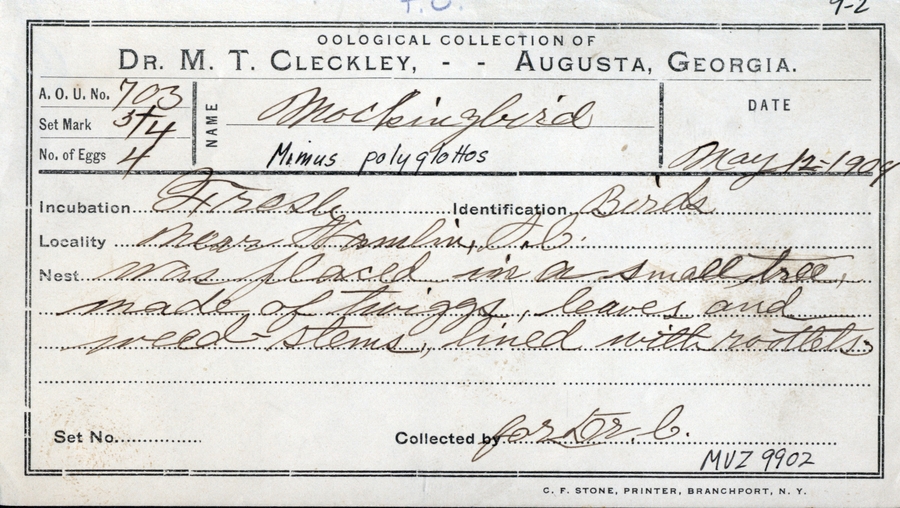 9-2
OOLOGICAL COLLECTION OF
DR. M. T. CLECKLEY, - - AUGUSTA, GEORGIA.
A. O. U. No. 703
Set Mark 3/4
No. of Eggs 4
NAME Mockingbird
Mimus polyglottos
DATE
May 12 - 1904
Incubation Fresh Identification Birds
Locality near Hamlin, S.C.
Nest was placed in a small tree,
made of twiggs, leaves and
weed stems, lined with rootlets
Set No. Collected by for Dr. C.
MVZ 9902
C. F. STONE, PRINTER, BRANCHPORT, N. Y.